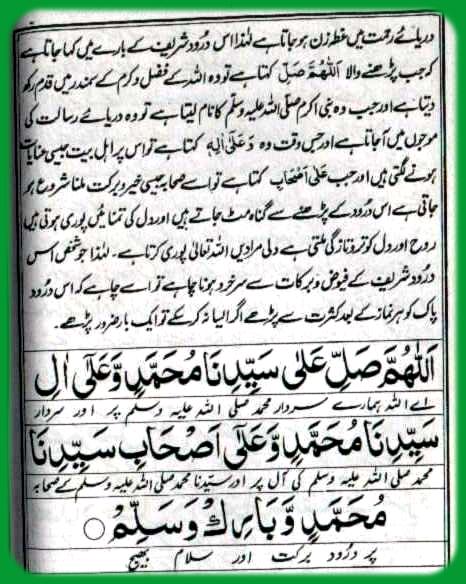 دریائے رحمت میں غوطہ زن ہو جاتا ہے لہٰذا اس درود شریف کے بارے میں کہا جاتا ہے
کہ جب پڑھنے والا اَللّٰهُمَّ صَلِّ کہتا ہے تو وہ اللہ کے فضل و کرم کے سمندر میں قدم رکھ
دیتا ہے اور جب وہ نبی اکرم صلی اللہ علیہ وسلم کا نام لیتا ہے تو وہ دریائے رسالت کی
موجوں میں آ جاتا ہے اور جس وقت وہ وَعَلٰی اٰلِهٖ کہتا ہے تو اس پر اہل بیت جیسی عنایات
ہونے لگتی ہیں اور جب عَلٰی اَصْحَابِ کہتا ہے تو اسے صحابہ جیسی خیر و برکت ملنا شروع ہو
جاتی ہے اس درود کے پڑھنے سے گناہ مٹ جاتے ہیں اور دل کی تمنائیں پوری ہوتی ہیں
روح اور دل کو تر و تازگی ملتی ہے دلی مرادیں اللہ تعالیٰ پوری کرتا ہے۔ لہٰذا جو شخص اس
درود شریف کے فیوض و برکات سے سرخرو ہونا چاہے تو اسے چاہیے کہ اس درود
پاک کو ہر نماز کے بعد کثرت سے پڑھے اگر ایسا نہ کر سکے تو ایک بار ضرور پڑھے۔
اَللّٰهُمَّ صَلِّ عَلٰى سَيِّدِنَا مُحَمَّدٍ وَّعَلٰٓى اٰلِ
اے اللہ ہمارے سردار محمد صلی اللہ علیہ وسلم پر اور سردار
سَيِّدِنَا مُحَمَّدٍ وَّعَلٰٓى اَصْحَابِ سَيِّدِنَا
محمد صلی اللہ علیہ وسلم کی آل پر اور سیدنا محمد صلی اللہ علیہ وسلم کے صحابہ
مُحَمَّدٍ وَّبَارِكْ وَسَلِّمْ ○
پر درود برکت اور سلام بھیج